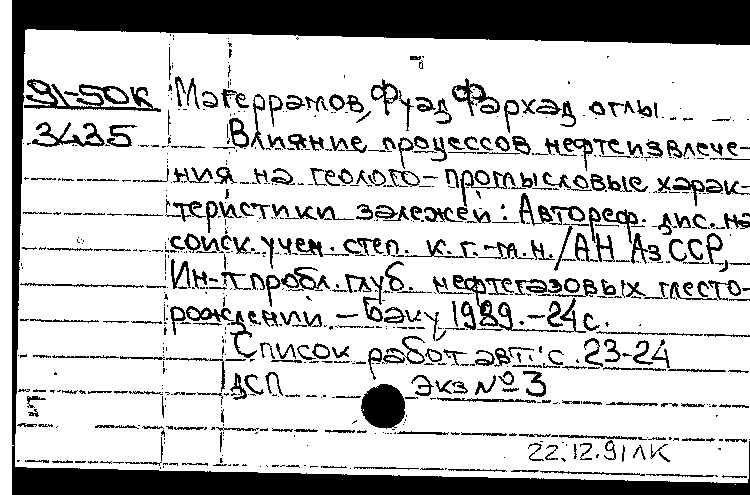 91-50К
3435
Магеррамов, Фуад Фархад оглы
Влияние процессов нефтеизвлече-
ния на геолого-промысловые харак-
теристики залежей: Автореф. дис. на
соиск. учен. степ. к. г.-м.н. / АН АзССР,
Ин-т пробл. глуб. нефтегазовых место-
рождений. - Баку, 1989. - 24 с.
Список работ авт.: с. 23-24
ДСП Экз № 3
22.12.91 ЛК